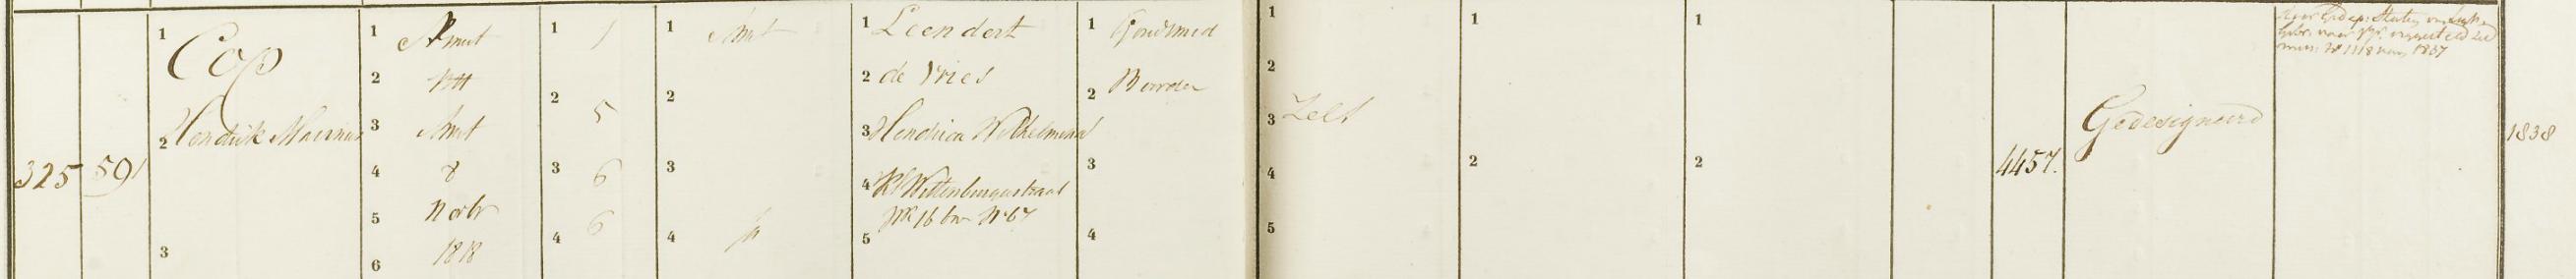 325
591
1 Cop
2 Hendrik
3
1 Amst
2
3 Amst
4 8
5 Novbr
6 1818
1 1
2 5
3 6
4 6
1 Amst
2
3
4
1 Leendert
2 de Vries
3 Hendrica Wilhelmina
4 Kl Wittenburgerstraat
WK 16 bu No 67
5
1 Goudsmid
2 Moeder
3
4
1
2
3 Zelf
4
5
1
2
1
2
4457.
Gedesigneerd
1838